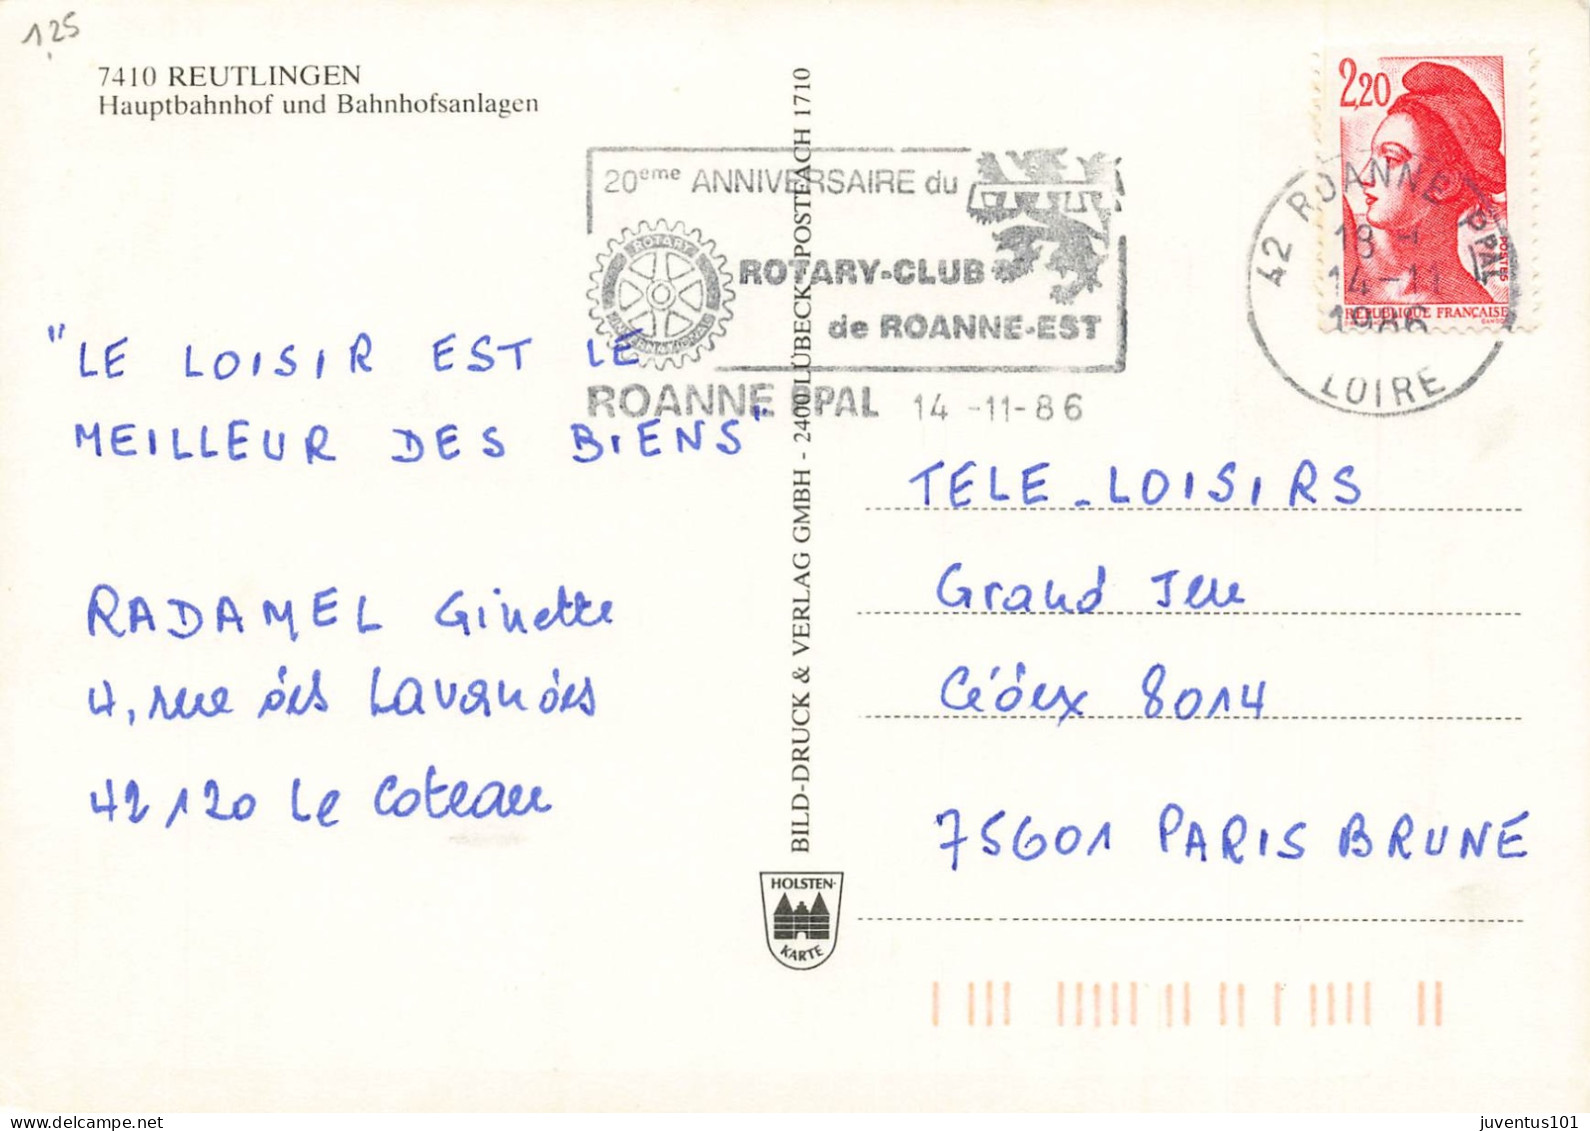 125
7410 REUTLINGEN
Hauptbahnhof und Bahnhofsanlagen
20eme ANNIVERSAIRE du
ROTARY-CLUB
de ROANNE-EST
ROTARY
INTERNATIONAL
ROANNE PPAL 14 -11-86
2,20
POSTES
REPUBLIQUE FRANÇAISE
42 ROANNE PPAL
18 -
14-11
1986
LOIRE
"LE LOISIR EST LE
MEILLEUR DES BIENS"
RADAMEL Ginette
4, rue des Lavandes
42120 Le Coteau
BILD-DRUCK & VERLAG GMBH - 2400 LÜBECK, POSTFACH 1710
HOLSTEN-
KARTE
TELE-LOISIRS
Grand Jeu
Cédex 8014
75601 PARIS BRUNE
juventus101